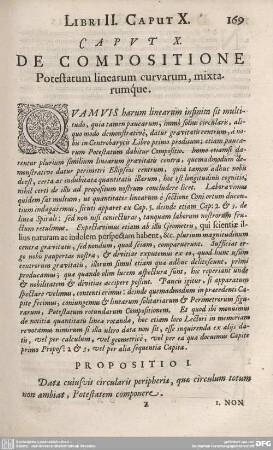 LIBRI II. CAPUT X. 169
CAPVT X.
DE COMPOSITIONE
Potestatum linearum curvarum, mixta-
rumque.
QVAMVIS harum linearum infinita sit multi-
tudo, quia tamen paucarum, immò solius circularis, ali-
quo modo demonstrativè, datur gravitatis centrum, à no-
bis in Centrobaryca Libro primo proditum; etiam pauca-
rum Potestatum dabitur Compositio. Immo etiamsi da-
rentur plurium similium linearum gravitatis centra, quemadmodum de-
monstrative datur perimetri Ellipseos centrum, quia tamen adhuc nobis
deest, certa ac indubitata quantitatis illarum, hoc est longitudinis cognitio,
nihil certi de illis ad propositum nostrum concludere licet. Laboravimus
quidem sat multum; ut quantitates linearum è sectione Conicarum ducen-
tium indagaremus, sicuti apparet ex Cap: 5. deinde etiam Cap: 2. & 3. de
linea Spirali: sed non nisi coniecturas, tanquam laborum nostrorum fru-
ctum retulimus.
centra gravitatis, sed nondum, quod sciam, comparuerunt. Sufficiat er-
go nobis paupertas nostra, & devitias exoptemus ex eo, quod hunc usum
centrorum gravitatis, illorum simul etiam quæ adhuc
producamus; quæ quando olim lucem aspectura sunt, hic reperiant unde
& nobilitatem & divitias accipere possint. Pauca igitur, si apparatum
spectare velimus, contenti erimus: deinde quemadmodum in præcedenti Ca-
pite fecimus, coniungemus & linearum solitariarum & Perimetrorum figu-
rarum, Potestatum rotundarum Compositionem. Et quod ibi monuimus
de notitia quantitatis linea rotanda, hic etiam loco Lectori in memoriam
revocatum nimirum si illa ultro data non sit, esse inquirenda ex aliis da-
tis, vel per calculum, vel geometricè, vel per ea qua docuimus Capite
primo Propos: 2. & 3. vel per alia sequentia Capita.
PROPOSITIO I.
Data cuiusvis circularis peripheria, quæ circulum totum
non ambiat, Potestatem componere.
1. NON